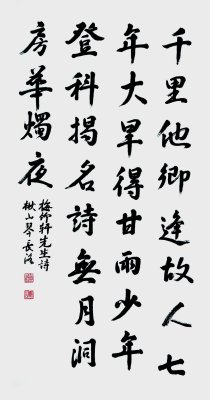 千里他鄉逢故人七
年大旱得甘雨少年
登科揭名詩無月洞
房華燭夜
梅竹軒先生詩
山琴長